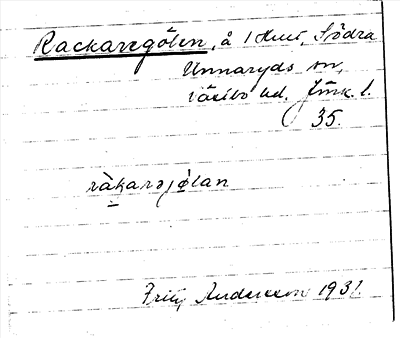 Rackaregölen, å 1 Hmt, Södra
Unnaryds sn,
Västbo hd. Jönk. l.
35.
ràkarəjǿlan
Fritz Andersson 1931.